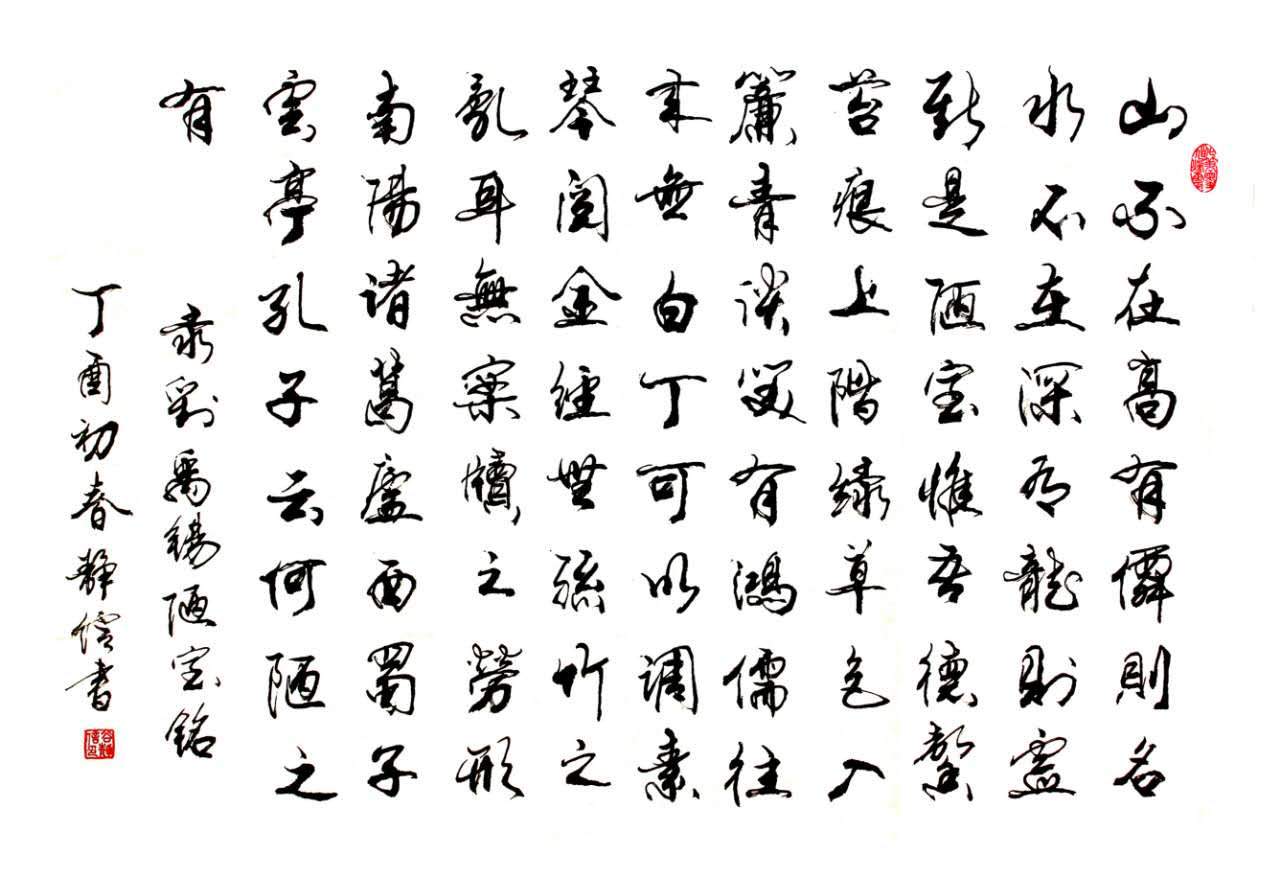 山不在高有僊則名
水不在深有龍則靈
斯是陋室惟吾德馨
苔痕上階緑草色入
簾青談笑有鴻儒往
来無白丁可以調素
琴閲金經無絲竹之
亂耳無案牘之勞形
南陽諸葛廬西蜀子
雲亭孔子云何陋之
有
录劉禹錫陋室銘
丁酉初春靜書